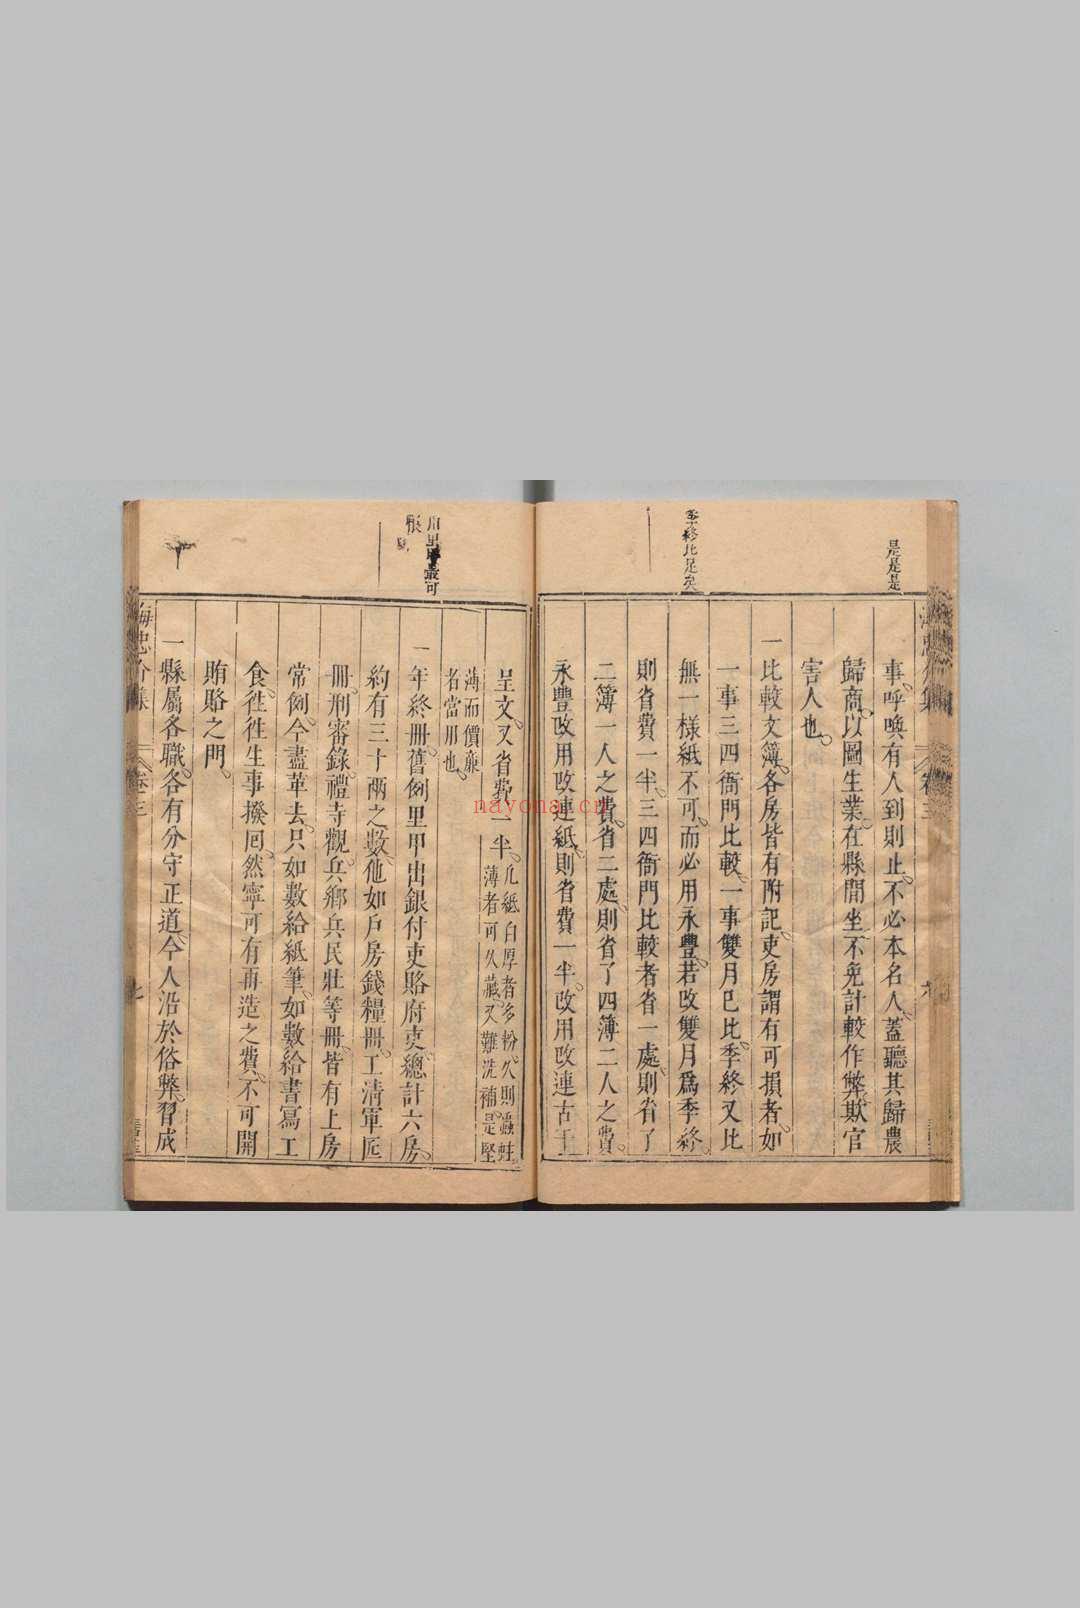 是是是
季終比足矣
事呼喚有人到則止不必本名人蓋聽其歸農
歸商以圖生業在縣閒坐不免計較作弊欺官
害人也
一比較文簿各房皆有附記吏房謂有可損者如
一事三四衙門比較一事雙月已比季終又比
無一樣紙不可而必用永豐若改雙月爲季終
則省費一半三四衙門比較者省一處則省了
二簿一人之費省二處則省了四簿二人之費
永豐改用改連紙則省費一半改用改連古干
海忠介集
卷三
六
可
呈文又省費一半
凡紙白厚者多粉久則蟲蛀
薄者可久藏又難洗補是堅
薄而價亷
者當用也
一年終冊舊例里甲出銀付吏賂府吏總計六房
約有三十兩之數他如戶房錢糧冊工清軍匠
冊刑審錄禮寺觀兵鄉兵民壯等冊皆有上房
常例今盡革去只如數給紙筆如數給書寫工
食往往生事撥回然寧可有再造之費不可開
賄賂之門
一縣屬各職各有分守正道今人沿於俗弊習成
海忠介集
卷三
七
nayona.cn